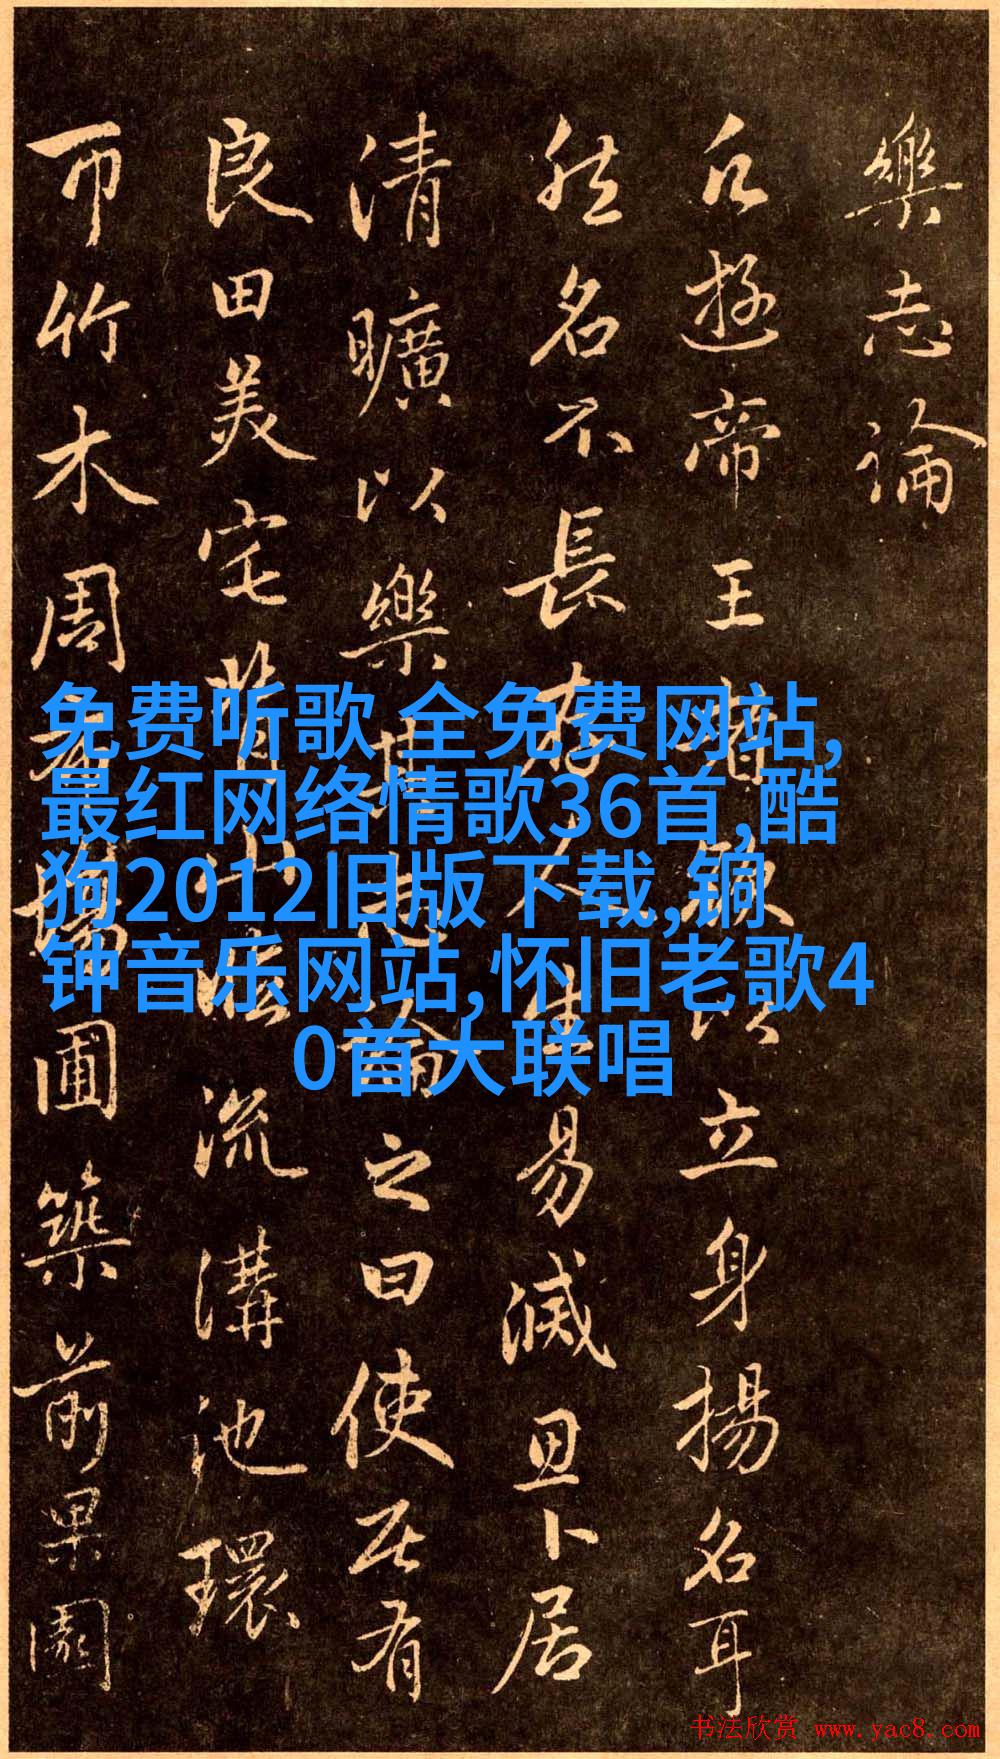 樂志論
凡遊帝王者欲以立身揚名耳
然名不長存人生易滅思卜居
清曠以樂其志論之曰使居有
良田美宅背山臨流溝池環
帀竹木周布場圃築前果園
免费听歌 全免费网站,
最红网络情歌36首,酷
狗2012旧版下载,铜
钟音乐网站,怀旧老歌4
0首大联唱
书法欣赏 www.yac8.com